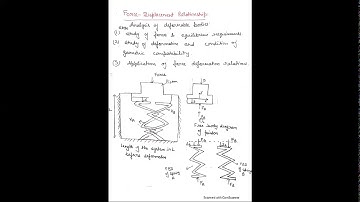 Force- Displacement Relationship:
Analysis of deformable bodies
(1) Study of force & equilibrium requirements
(2) Study of deformation and condition of
geometric compatibility.
(3) Application of force deformation relations.
Force
Piston
Free body diagram
of piston
Length of the system is L
before deformation
FBD
of spring
A
FBD
of spring
B
Scanned with CamScanner